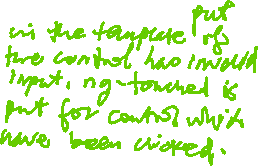 put
in the template if
the control has invalid
input, ng-touched is
put for control which
have been clicked.